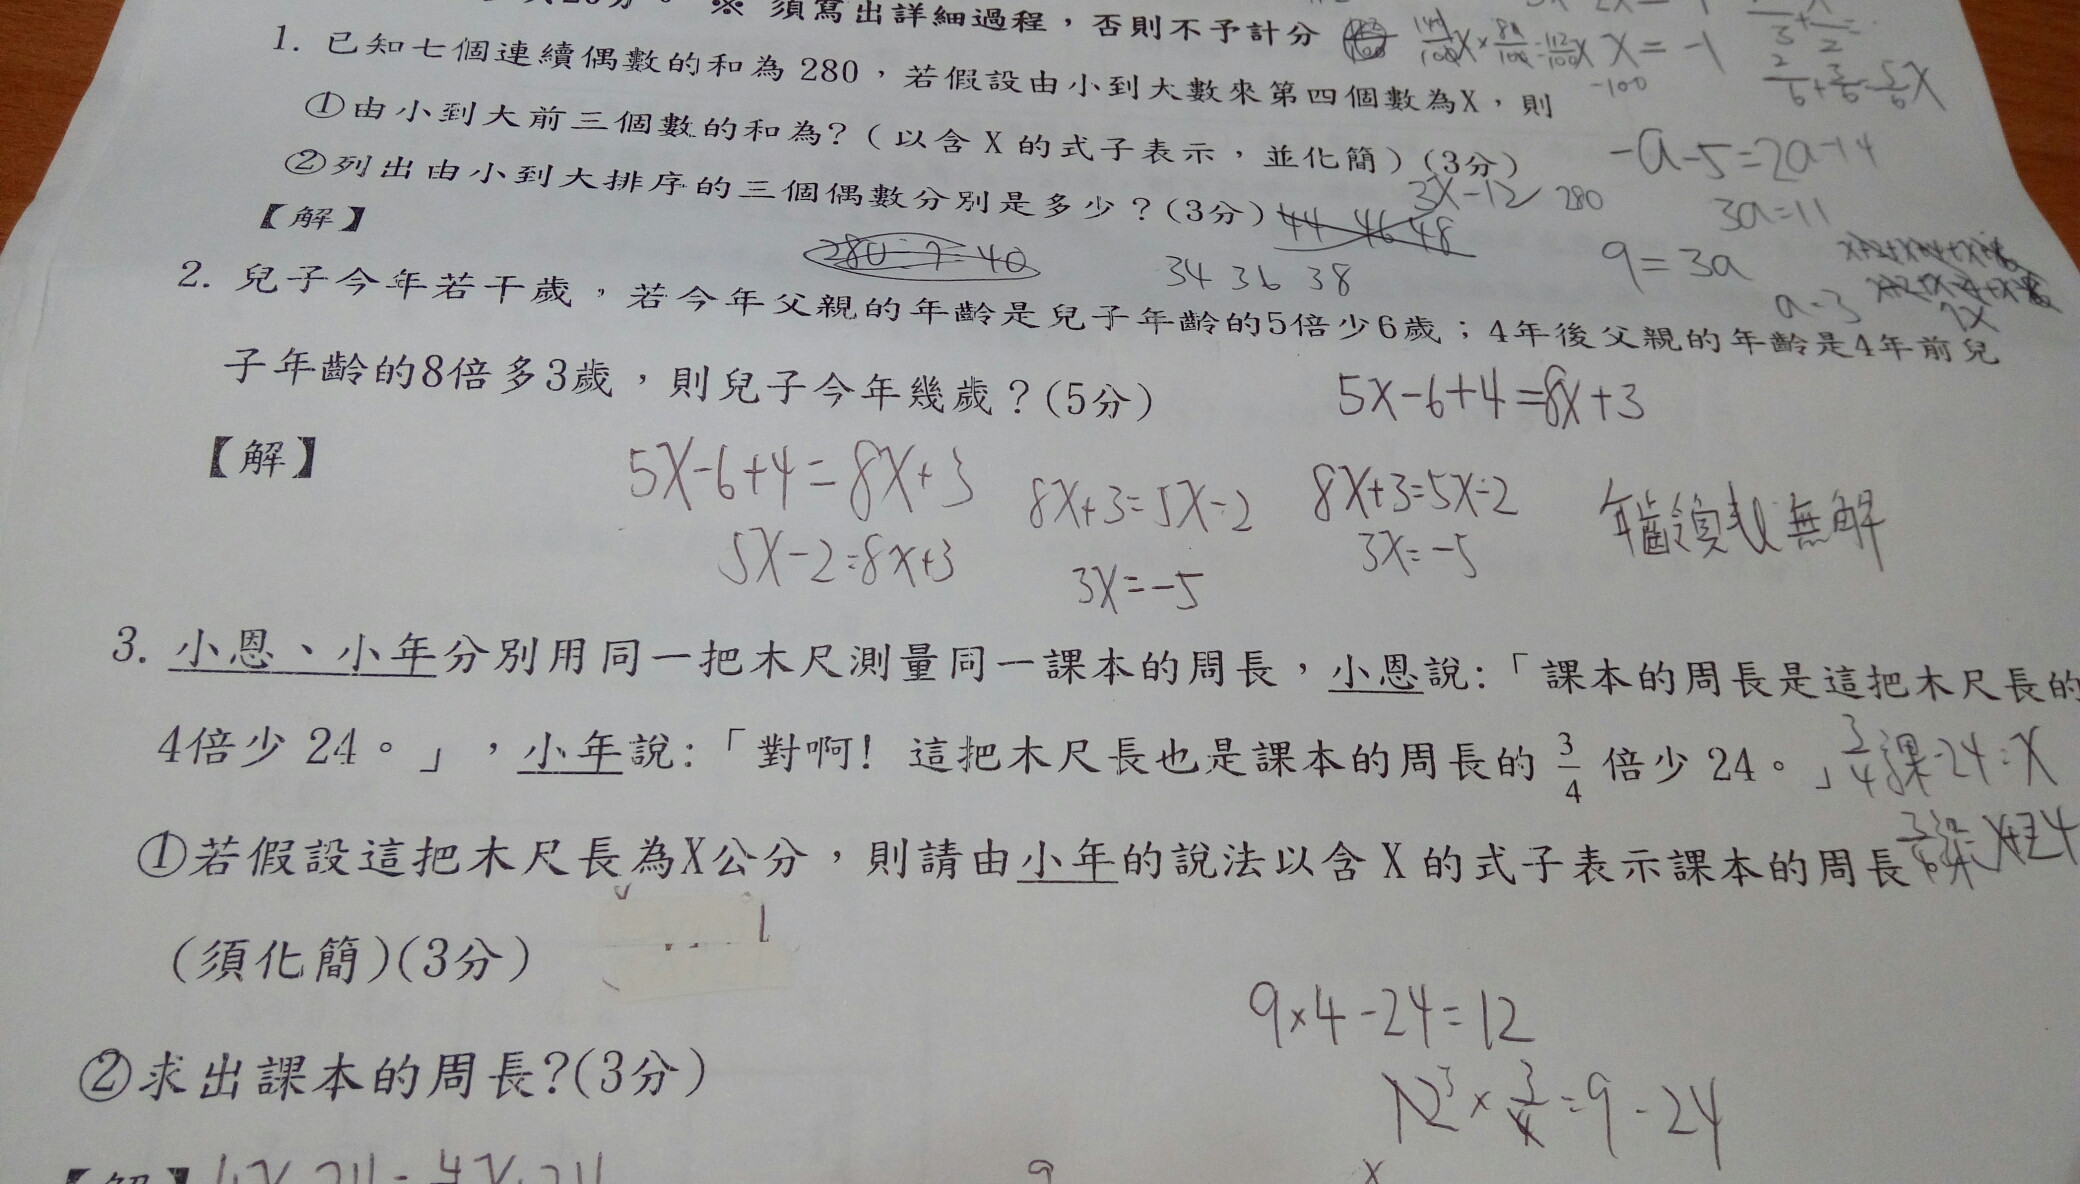 ※ 須寫出詳細過程，否則不予計分
1. 已知七個連續偶數的和為 280，若假設由小到大數來第四個數為X，則
①由小到大前三個數的和為?（以含 X 的式子表示，並化簡）(3分)
②列出由小到大排序的三個偶數分別是多少？(3分)
3X-12 280
【解】
280÷7=40
44 46 48
34 36 38
X=-1
-100
-a-5=2a-14
3a=11
9=3a
a=3
7X
2. 兒子今年若干歲，若今年父親的年齡是兒子年齡的5倍少6歲；4年後父親的年齡是4年前兒
子年齡的8倍多3歲，則兒子今年幾歲？(5分)
5X-6+4=8X+3
【解】
5X-6+4=8X+3
8X+3=5X-2
8X+3=5X-2
5X-2=8X+3
3X=-5
3X=-5
無解
3. 小恩、小年分別用同一把木尺測量同一課本的周長，小恩說:「課本的周長是這把木尺長的
4倍少 24。」，小年說:「對啊! 這把木尺長也是課本的周長的 3/4 倍少 24。」
3/4課-24=X
①若假設這把木尺長為X公分，則請由小年的說法以含 X 的式子表示課本的周長
X+24
(須化簡)(3分)
9×4-24=12
②求出課本的周長?(3分)
12×3/4=9-24
【解】